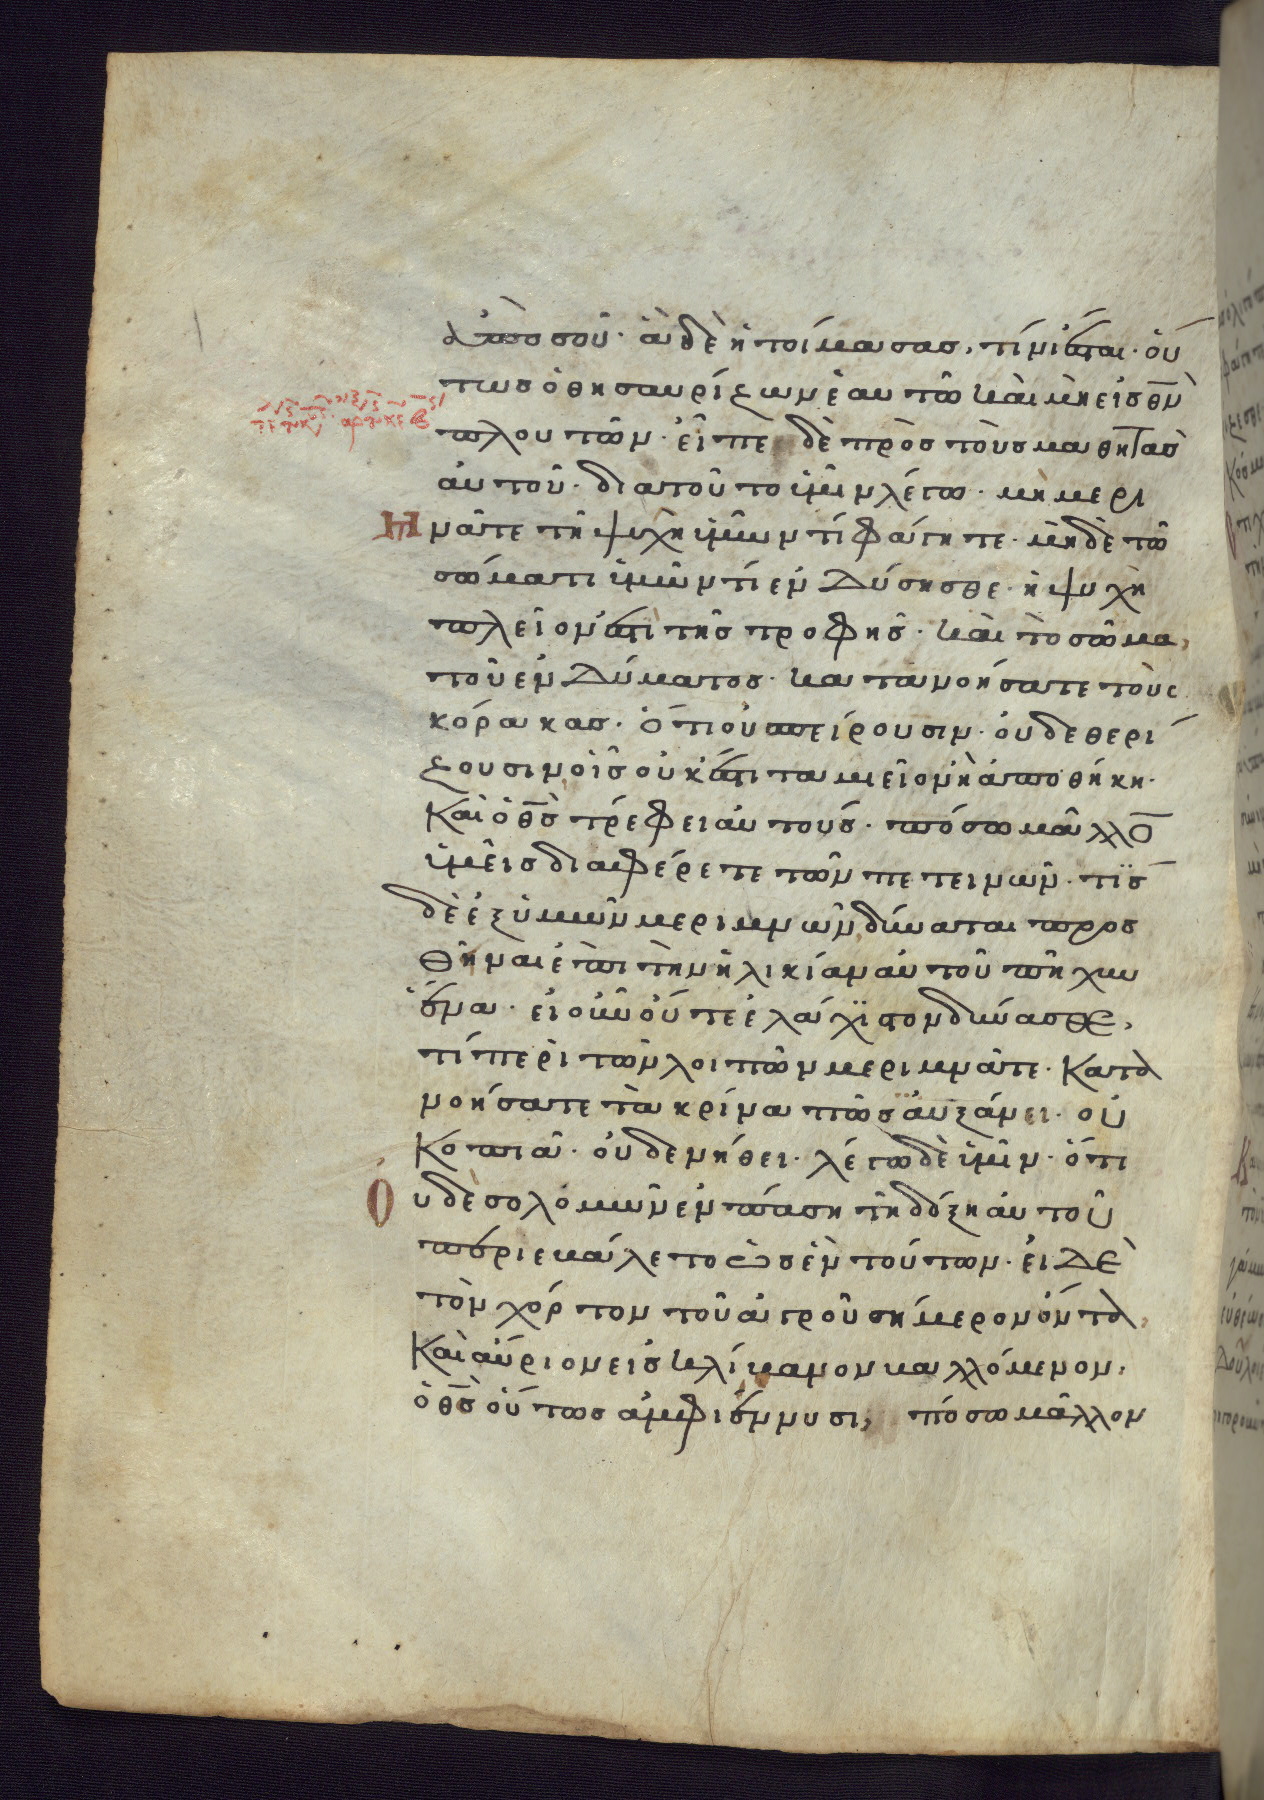 ἀπὸ σοῦ· ἃ δὲ ἡτοίμασας, τίνι ἔσται· οὕ
τως ὁ θησαυρίζων ἑαυτῶ καὶ μὴ εἰς θ̅ν̅
πλουτῶν· εἶπε δὲ πρὸς τοὺς μαθητὰς
αὐτοῦ· διατοῦτο ὑμῖν λέγω· μὴ μερι
μνᾶτε τῆ ψυχῆ ὑμῶν τί φάγητε· μηδὲ τῶ
σώματι ὑμῶν τί ἐνδύσησθε· ἡ ψυχὴ
πλεῖον ἐστὶ τῆς τροφῆς· καὶ τὸ σῶμα,
τοῦ ἐνδύματος· κατανοήσατε τοὺς
κόρακας· ὅτι οὐ σπείρουσιν· οὐδὲ θερί
ζουσιν οἷς οὐκ ἔστι ταμεῖον ἢ ἀποθήκη·
Καὶ ὁ θ̅ς̅ τρέφει αὐτούς· πόσω μᾶλλο̅
ὑμεῖς διαφέρετε τῶν πετεινῶν· τίς
δὲ ἐξ ὑμῶν μεριμνῶν δύναται προσ
θῆναι ἐπὶ τὴν ἡλικίαν αὐτοῦ πῆχυν
ἕνα· εἰ οὖν οὔτε ἐλάχιστον δύνασθε,
τί περὶ τῶν λοιπῶν μεριμνᾶτε· Κατα
νοήσατε τὰ κρίνα πῶς αὐξάνει· οὐ
κοπιᾶ· οὐδὲ νήθει· λέγω δὲ ὑμῖν· ὅτι
Οὐδὲ σολομῶν ἐν πάση τῆ δόξη αὐτοῦ
περιεβάλετο ὡς ἓν τούτων· εἰ δὲ
τὸν χόρτον τοῦ ἀγροῦ σήμερον ὄντα,
Καὶ αὔριον εἰς κλίβανον βαλλόμενον,
ὁ θ̅ς̅ οὕτως ἀμφιέννυσι, πόσω μᾶλλον